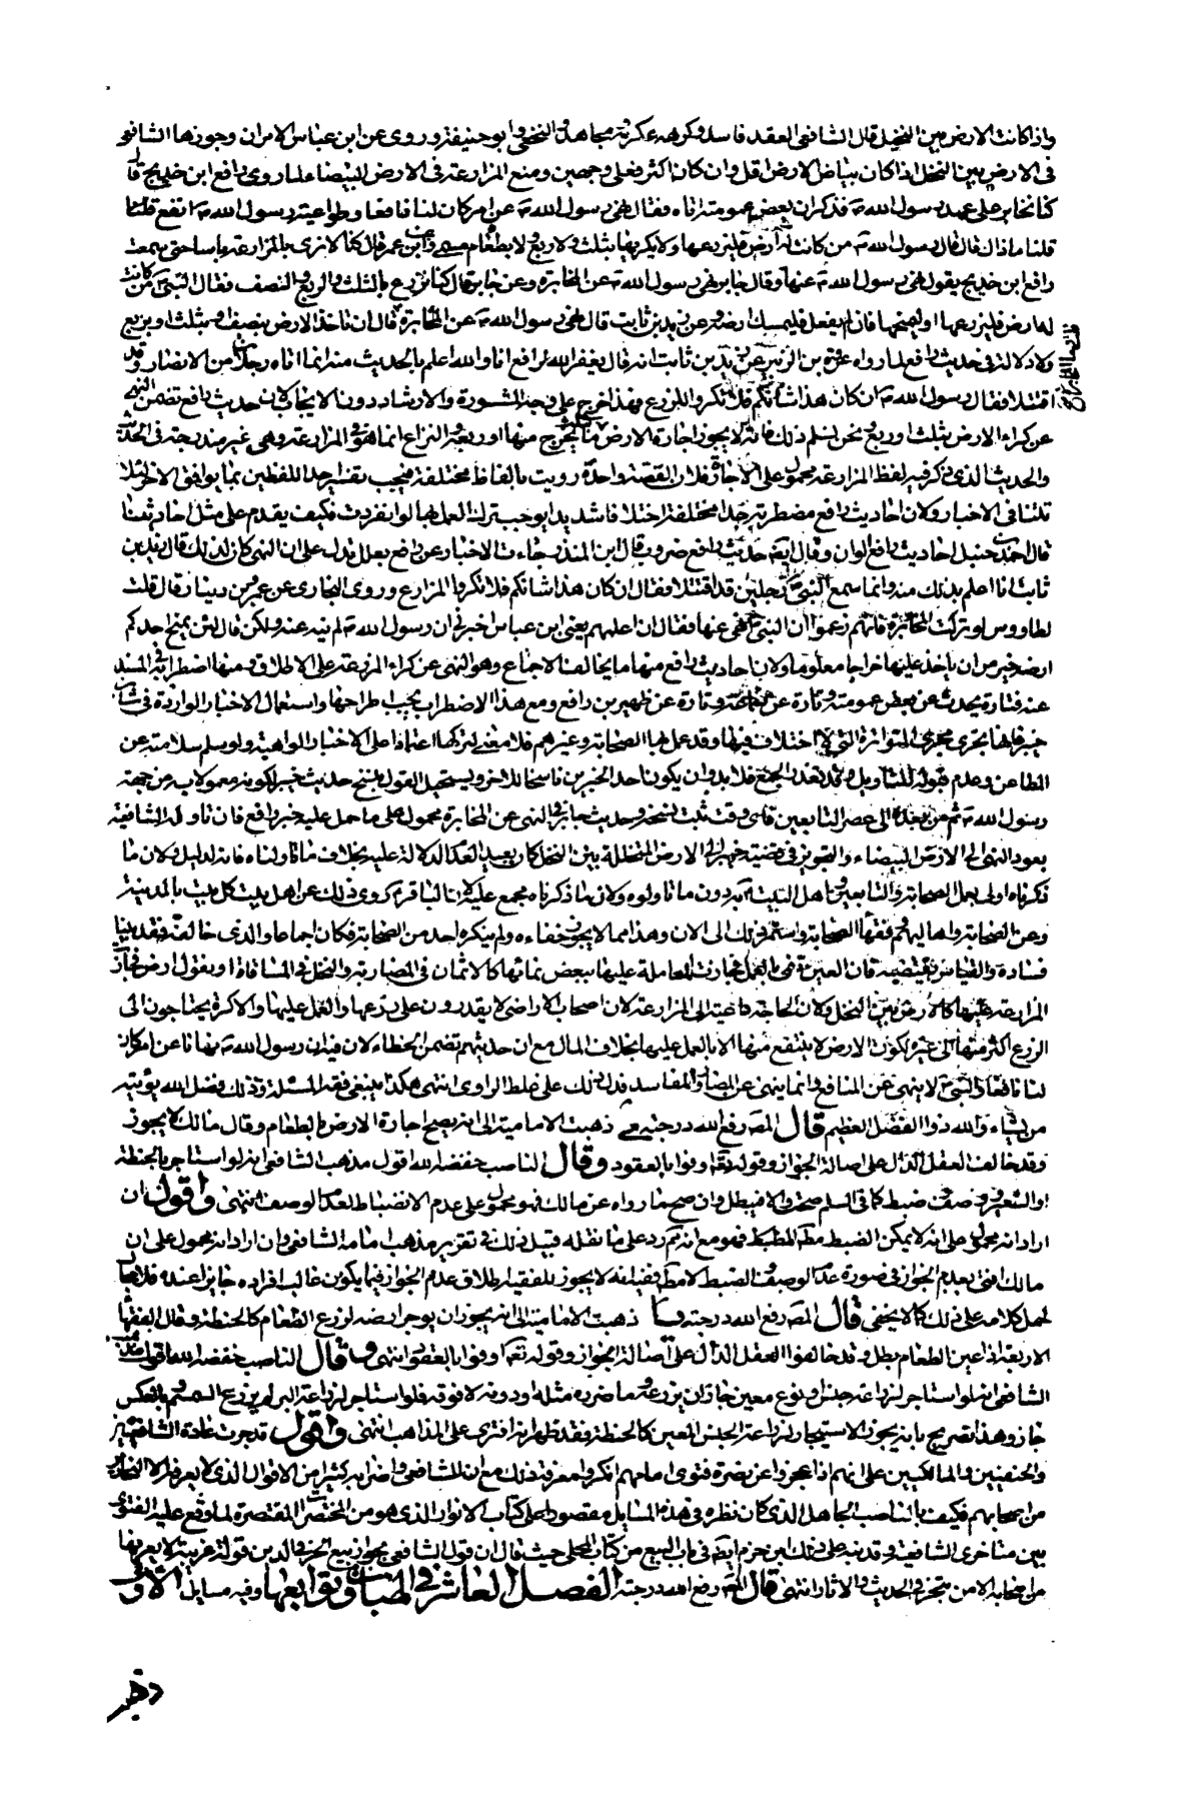 واذا كانت الارض بين النخيل قال الشافعي العقد فاسد وكرهه عكرمة ومجاهد والنخعي وابو حنيفة وروى عن ابن عباس الامران وجوزها الشافعي
في الارض بين النخل اذا كان بياض الارض اقل وان كان اكثر فعلى وجهين ومنع المزارعة في الارض البيضاء لما روى رافع ابن خديج قال
كنا نخابر على عهد رسول الله ص فذكر ان بعض عمومته اتاه فقال نهى رسول الله ص عن امر كان لنا نافعا وطواعية رسول الله ص انفع قلنا
قلنا ما ذاك قال قال رسول الله ص من كانت له ارض فليزرعها ولا يكريها بثلث ولا ربع ولا بطعام مسمى وعن ابن عمر قال كنا لا نرى بالمزارعة باسا حتى سمعت
رافع ابن خديج يقول نهى رسول الله ص عنها وقال جابر نهى رسول الله ص عن المخابرة وعن جابر قال كنا نزرع بالثلث والربع والنصف فقال النبي ص من كانت
له ارض فليزرعها او ليمنحها فان لم يفعل فليمسك ارضه وعن زيد بن ثابت قال نهى رسول الله ص عن المخابرة قال ان تاخذ الارض بنصف او بثلث او بربع
ولا دلالة في حديث رافع لما رواه عروة بن الزبير عن زيد بن ثابت انه قال يغفر الله لرافع انا والله اعلم بالحديث منه انما اتاه رجلان من الانصار وقد
اقتتلا فقال رسول الله ص ان كان هذا شأنكم فلا تكروا المزارع فهذا خرج على وجه المشورة والارشاد دون الايجاب ولان حديث رافع تضمن النهي
عن كراء الارض بثلث او ربع ونحن نسلم ذلك فانه لا يجوز اجارة الارض مما يخرج منها او ربعه والنزاع انما هو في المزارعة وهي غير مندرجة في الحديث
والحديث الذي ذكر فيه لفظ المزارعة محمول على الاجارة فلان القصة واحدة رويت بالفاظ مختلفة فيجب تفسير احد اللفظين بما يوافق الاخر لئلا
تتنافى الاخبار ولان احاديث رافع مضطربة جدا مختلفة اختلافا شديدا يوجب ترك العمل بها لو انفردت فكيف يقدم على مثل احاديثنا
قال احمد بن حنبل احاديث رافع الوان وقال ايضا حديث رافع ضروب قال ابن المنذر جاءت الاخبار عن رافع بعلل تدل على ان النهي كان لذلك قال زيد بن
ثابت انا اعلم بذلك منه وانما سمع النبي ص رجلين قد اقتتلا فقال ان كان هذا شانكم فلا تكروا المزارع وروى البخاري عن عمرو بن دينار قال قلت
لطاووس لو تركت المخابرة فانهم زعموا ان النبي ص نهى عنها فقال ان اعلمهم يعني ابن عباس اخبرني ان رسول الله ص لم ينه عنه ولكن قال لئن يمنح احدكم
ارضه خير من ان ياخذ عليها خراجا معلوما ولان احاديث رافع منها ما يخالف الاجماع وهو النهي عن كراء المزرعة على الاطلاق ومنها اضطرابه في المسند
عنه فتارة يحدث عن بعض عمومته وتارة عن وتارة عن ظهير بن رافع ومع هذا الاضطراب يجب اطراحها واستعمال الاخبار الواردة في شأن
خيبر فانها تجري مجرى المتواترة التي لا اختلاف فيها وقد عمل بها الصحابة وغيرهم فلا معنى لتركها اعتمادا على الاخبار الواهية ولو سلم سلامته عن
المطاعن وعدم قبوله للتأويل وتعذر الجمع فلا بد وان يكون احد الخبرين ناسخا للاخر ويستحيل القول بنسخ حديث خيبر لكونه معمولا به من جهة
رسول الله ص ثم من بعده الى عصر التابعين فاى وقت ثبت نسخه وحديث جابر في النهي عن المخابرة محمول على ما حمل عليه خبر رافع فان تاوله الشافعية
بعود النهي الى الارض البيضاء والتجويز في قضية خيبر الى الارض المتخللة بين النخل كان بعيدا لعدم الدلالة عليه بخلاف ما تاولناه فانه لدليل ولان ما
ذكرناه اولى بعمل الصحابة والتابعين واهل البيت به دون ما تاولوه ولان ما ذكرناه مجمع عليه لان الباقر ع روى ذلك عن اهل بيت كل بيت بالمدينة
وعن الصحابة واهاليهم وفقهاء الصحابة واستمر ذلك الى الان وهذا مما لا يجوز خفاءه ولم ينكره احد من الصحابة فكان اجماعا والذي خالف فقد بينا
فساده والقياس يقتضيه فان العين تنمى بالعمل فجازت المعاملة عليها ببعض نمائها كالاثمان في المضاربة والنخل في المساقاة او نقول ارض فجازت
المزارعة عليها كالارض بين النخل ولان الحاجة داعية الى المزارعة لان اصحاب الاراضي لا يقدرون على زرعها والعمل عليها والاكرة يحتاجون الى
الزرع اكثر منها الى غيره لكون الارض لا ينتفع منها الا بالعمل عليها بخلاف المال مع ان حديثهم تضمن الخطاء لان فيه ان رسول الله ص نهانا عن امر كان
لنا نافعا والنبي ص لا ينهى عن المنافع وانما ينهى عن المضار والمفاسد فدل ذلك على غلط الراوي انتهى هكذا ينبغي فقه المسئلة وذلك فضل الله يؤتيه
من يشاء والله ذو الفضل العظيم قال المصنف رفع الله درجته ذهبت الامامية الى انه يصح اجارة الارض بالطعام وقال مالك لا يجوز
وقد خالف العقل الدال على اصالة الجواز وقوله تعالى اوفوا بالعقود وقال الناصب خفضه الله اقول مذهب الشافعي انه لو استاجر بالحنطة
او الشعير ووصف وضبط كما في السلم صحت والا فيبطل وان صح ما رواه عن مالك فهو محمول على عدم الانضباط لعدم الوصف انتهى واقول ان
اراد انه محمول على انه لا يمكن الضبط فهو مع انه رد على ما نقله قبيل ذلك في تقرير مذهب امامه الشافعي وان اراد انه محمول على ان
مالك افتى بعدم الجواز في صورة عدم الوصف والضبط لا مطلقا ففيه انه لا يجوز للفقيه اطلاق عدم الجواز فيما يكون غالب افراده جايزا عنده فلا
لحمل كلامه على ذلك كما لا يخفى قال المصنف رفع الله درجته ذهبت الامامية الى انه يجوز ان يوجر ارضه لزرع الطعام كالحنطة وقال الفقهاء
الاربعة اذا عين الطعام بطل وقد خالفوا العقل الدال على اصالة الجواز وقوله تعالى اوفوا بالعقود انتهى وقال الناصب خفضه الله اقول مذهب
الشافعي انه لو استاجر لزراعة جنس او نوع معين جاز ان يزرعه وما ضرره مثله او دونه لا فوقه فلو استاجر لزراعة البر لم يزرع وبالعكس
جاز وهذا تصريح بانه يجوز الاستيجار لزراعة الجنس المعين كالحنطة فقد ظهر انه افترى على المذاهب انتهى واقول قد جرت عادة الشافعية
والحنفيين والمالكيين على انهم اذا عجزوا عن نصرة فتوى امامهم انكروا معرفة ذلك مع ان للشافعي واضرابه كثير من الاقوال الذي لا يعرفه الا النحارير
من اصحابهم فكيف بالناصب الجاهل الذي كان نظره في هذه المسايل مقصورا على كتاب الانوار الذي هو من المختصرات المقتصرة لما وقع عليه الفتوى
بين متاخرى الشافعية وقد نبه على ذلك ابن حزم ايضا في باب البيع من كتاب المحلى حيث قال ان قول الشافعي بجواز بيع الحر في الدين قولة غريبة لا يعرفها
من اصحابه الا من تبحر في الحديث والاثار انتهى قال المصنف رفع الله درجته الفصل العاشر في الهبات وتوابعها وفيه مسايل الاولى